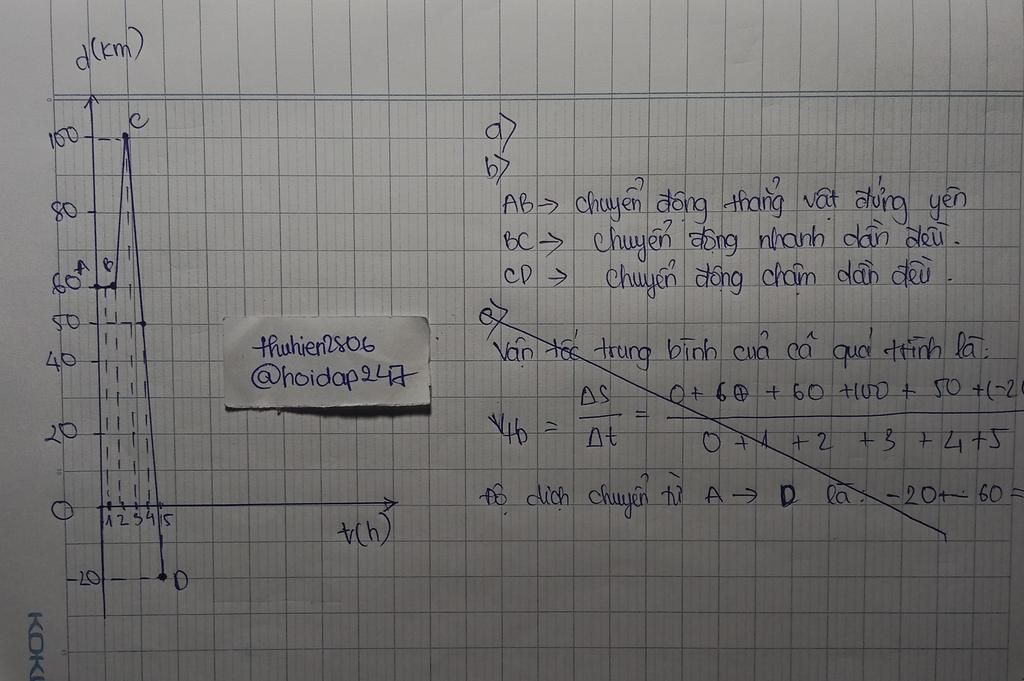 d(km)
C
100
80
A
B
60
50
40
20
0
1 2 3 4 5
t(h)
-20
D
thuhien2806
@hoidap247
a)
b)
AB → chuyển động thẳng vật đứng yên
BC → chuyển động nhanh dần đều.
CD → chuyển động chậm dần đều.
Vận tốc trung bình cuả cả quá trình là:
Vtb = ΔS/Δt = 0 + 60 + 60 + 100 + 50 + (-20
0 + 1 + 2 + 3 + 4 + 5
độ dịch chuyển từ A → D là: -20 - 60 =
KOKU